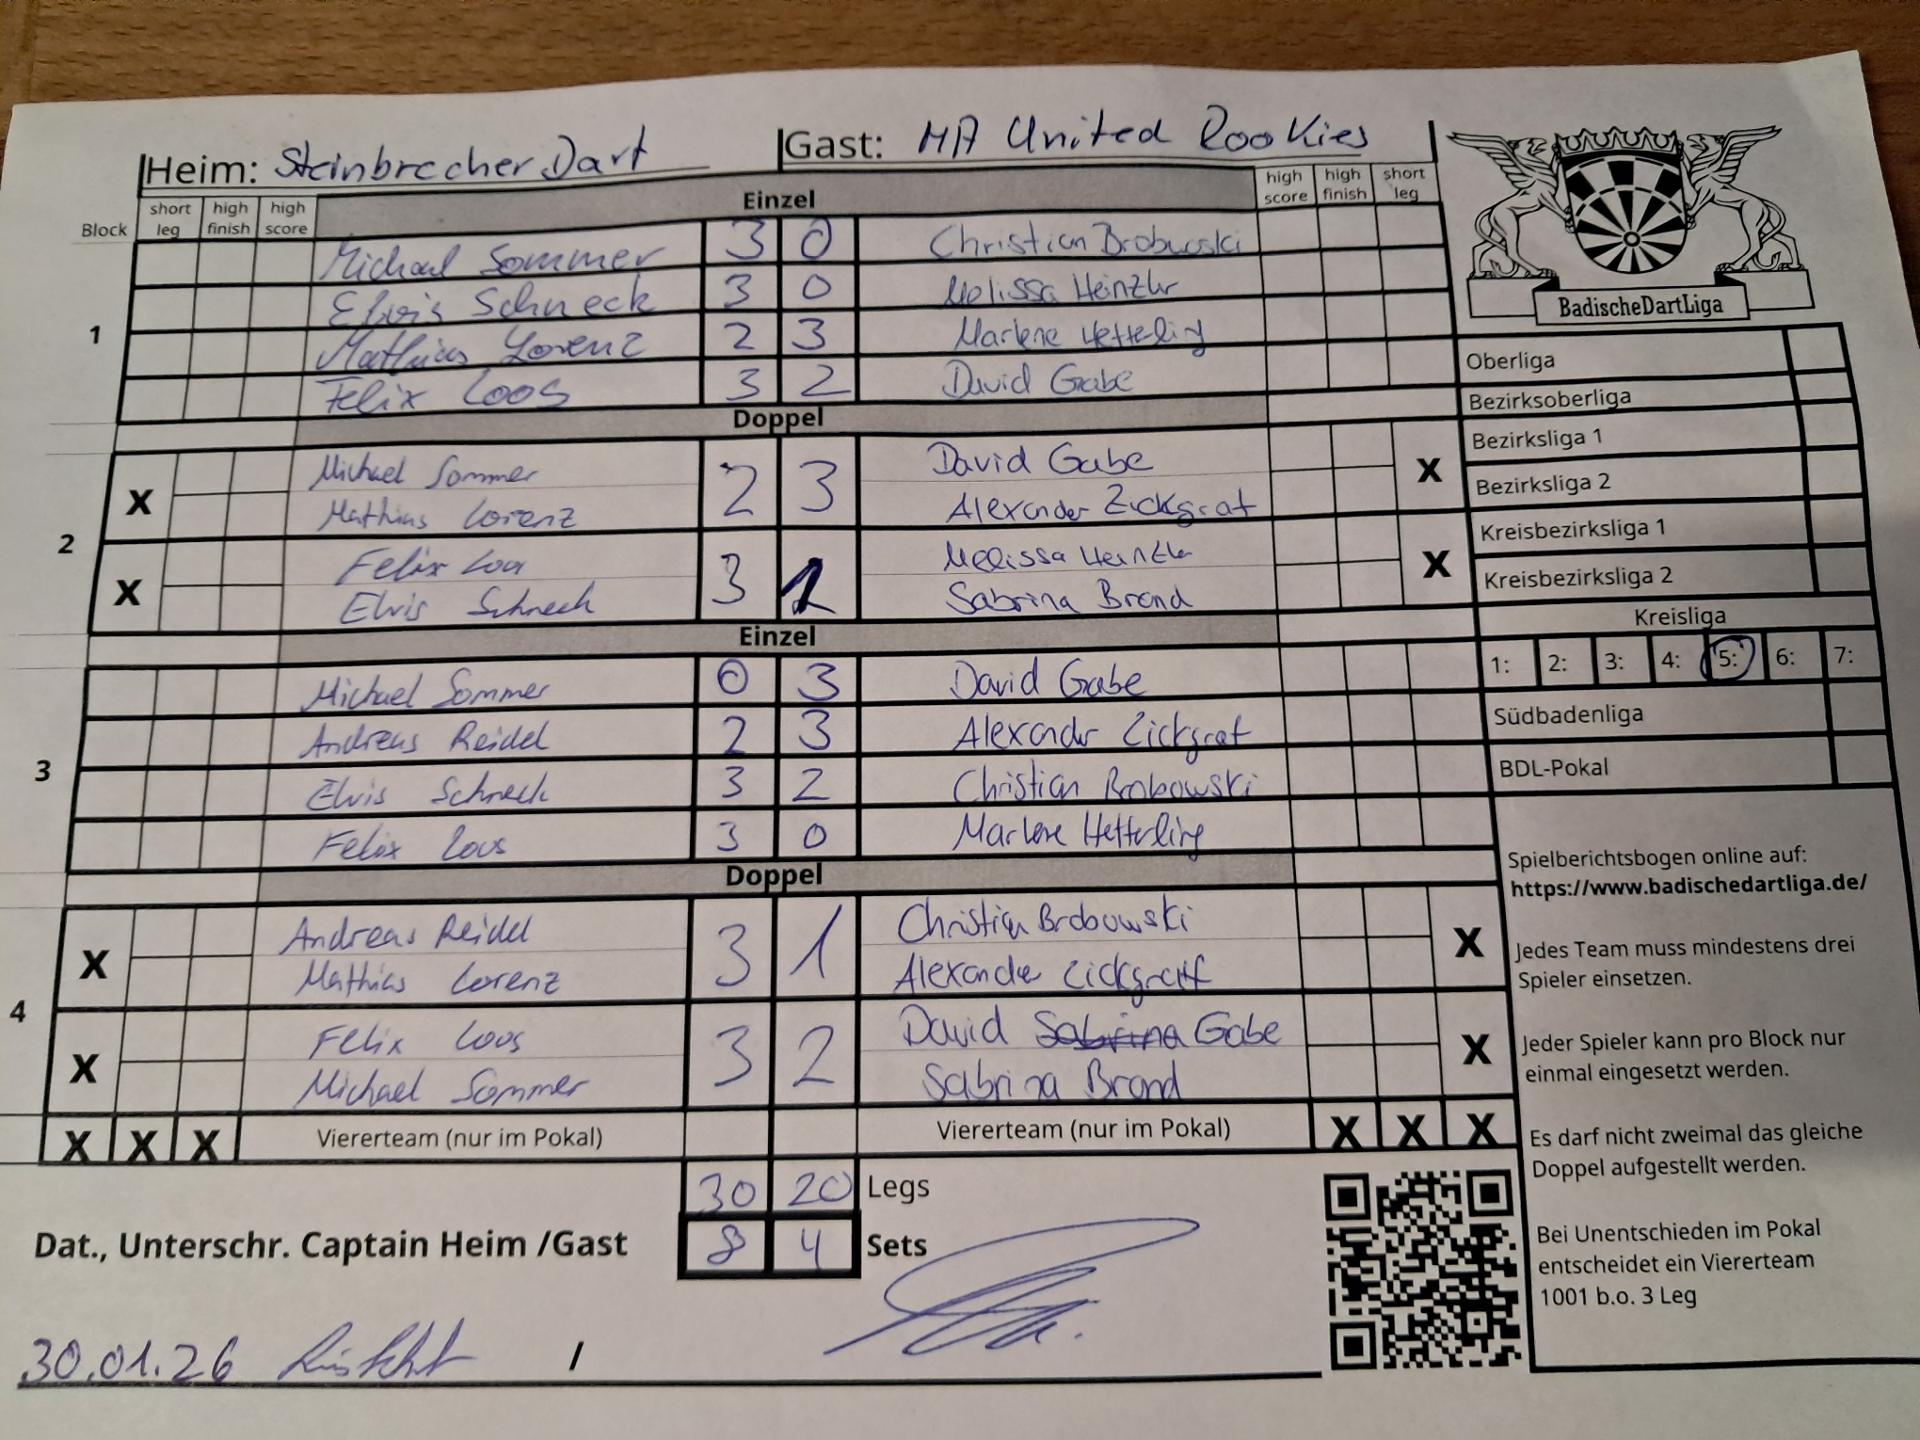 Heim: Steinbrecher Dart
Gast: MA United Rookies
Block short leg high finish high score Einzel high score high finish short leg
Michael Sommer 3 0 Christian Brobowski
Elvis Schneck 3 0 Melissa Heinzler
1
Mathias Lorenz 2 3 Marlene Hetterling
Felix Loos 3 2 David Gabe
Doppel
Michael Sommer 2 3 David Gabe
X Mathias Lorenz Alexander Zickgraf X
2
Felix Loos 3 1 Melissa Heinzler
X Elvis Schneck Sabrina Brand X
Einzel
Michael Sommer 0 3 David Gabe
Andreas Reidel 2 3 Alexander Zickgraf
3
Elvis Schneck 3 2 Christian Brobowski
Felix Loos 3 0 Marlene Hetterling
Doppel
Andreas Reidel 3 1 Christian Brobowski
X Mathias Lorenz Alexander Zickgraf X
4
Felix Loos 3 2 David Sabrina Gabe
X Michael Sommer Sabrina Brand X
X X X Viererteam (nur im Pokal) Viererteam (nur im Pokal) X X X
30 20 Legs
Dat., Unterschr. Captain Heim /Gast 8 4 Sets
30.01.26 /
BadischeDartLiga
Oberliga
Bezirksoberliga
Bezirksliga 1
Bezirksliga 2
Kreisbezirksliga 1
Kreisbezirksliga 2
Kreisliga
1: 2: 3: 4: 5: 6: 7:
Südbadenliga
BDL-Pokal
Spielberichtsbogen online auf:
https://www.badischedartliga.de/
Jedes Team muss mindestens drei
Spieler einsetzen.
Jeder Spieler kann pro Block nur
einmal eingesetzt werden.
Es darf nicht zweimal das gleiche
Doppel aufgestellt werden.
Bei Unentschieden im Pokal
entscheidet ein Viererteam
1001 b.o. 3 Leg